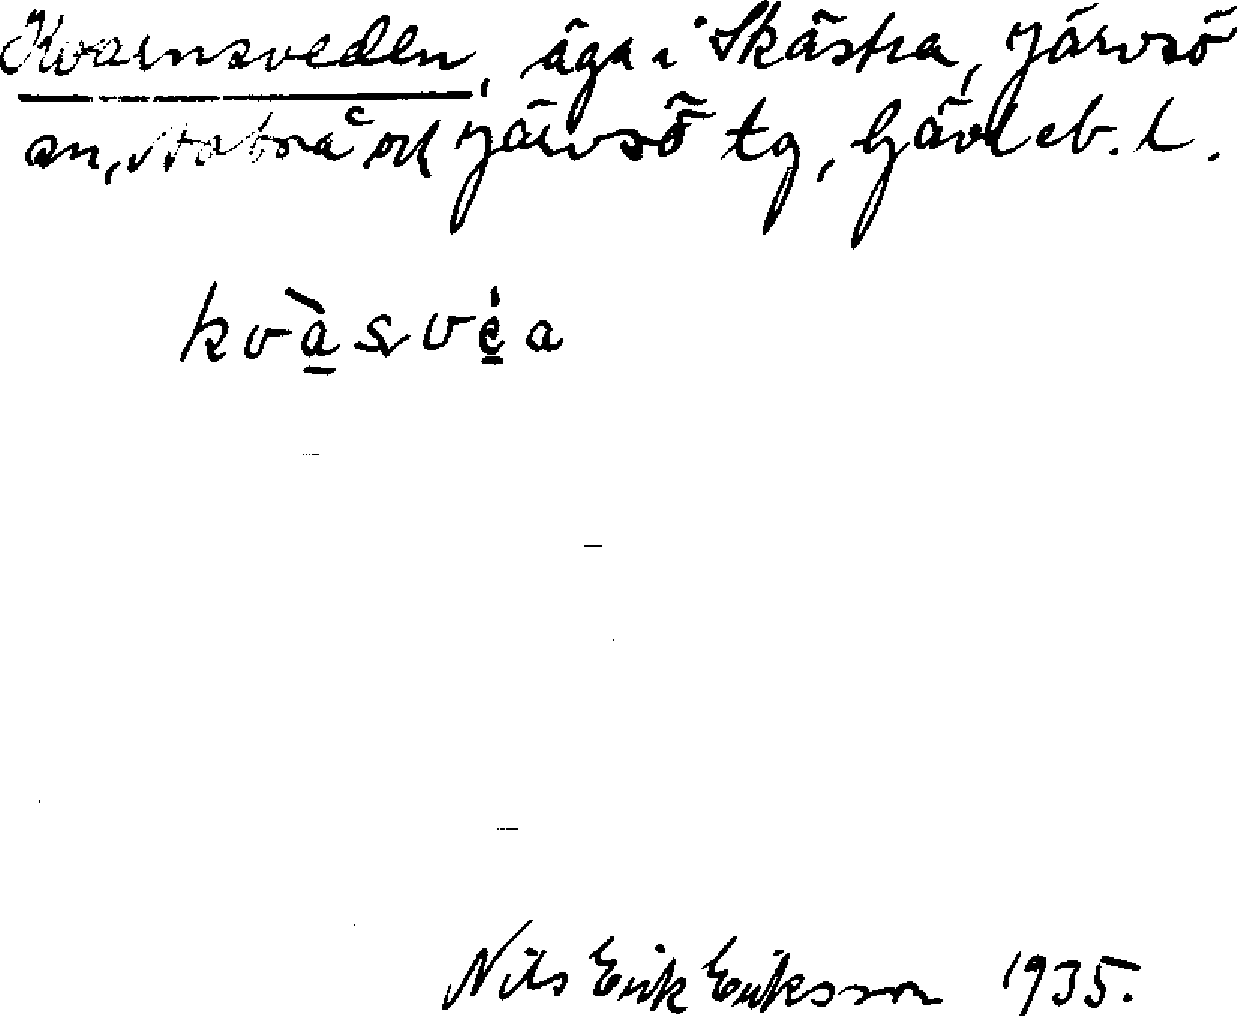 Kvarnsveden, äga i Skästra, Järvsö
sn, Stobrå och Järvsö tg, Gävleb. l.
kvàsvéa
Nils Erik Eriksson 1935.